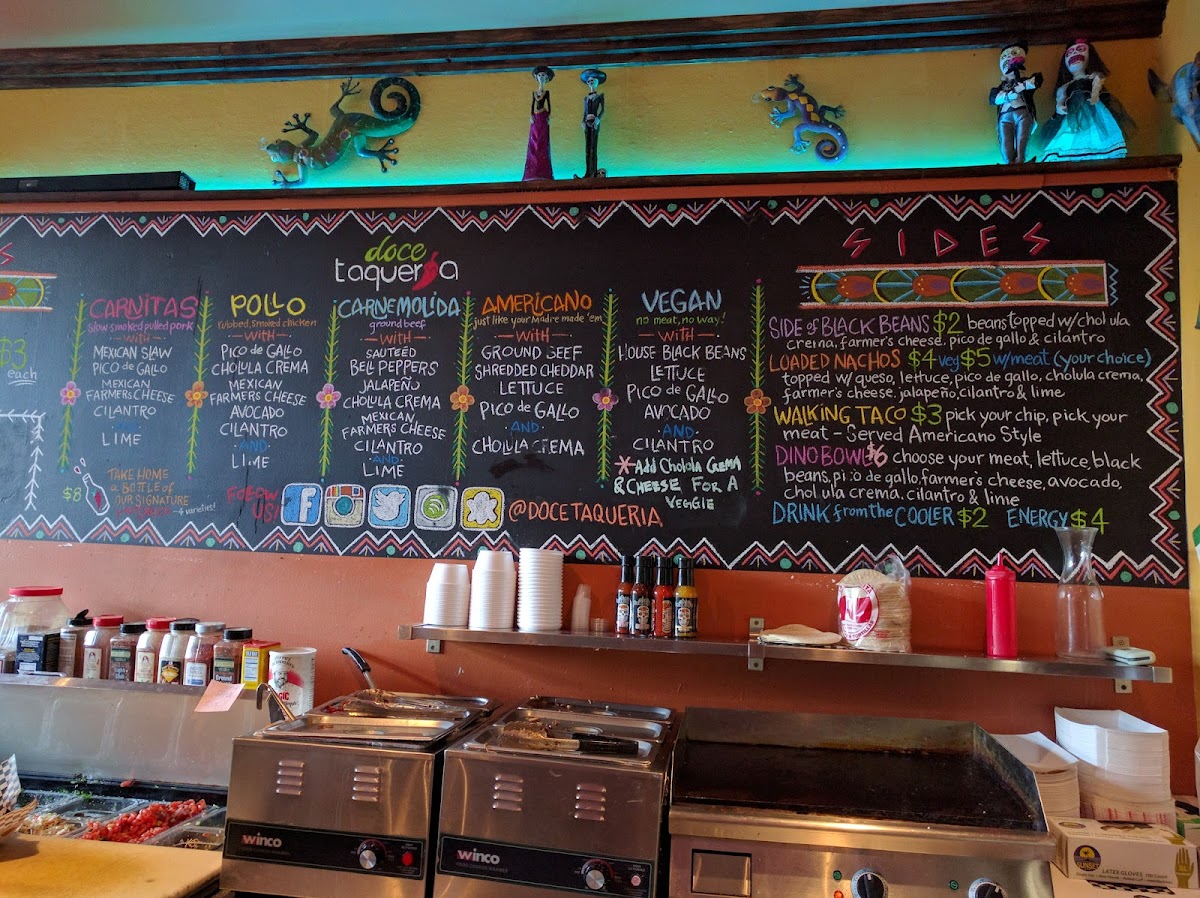 S
$3
each
CARNITAS
slow-smoked pulled pork
WITH
MEXICAN SLAW
PICO de GALLO
MEXICAN
FARMERS CHEESE
CILANTRO
LIME
$8
TAKE HOME
a BOTTLE of
OUR SIGNATURE
-4 varieties!
POLLO
rubbed, smoked chicken
WITH
PICO de GALLO
CHOLULA CREMA
MEXICAN
FARMERS CHEESE
AVOCADO
CILANTRO
AND
LIME
doce
taqueria
CARNEMOLIDA
ground beef
WITH
SAUTEED
BELL PEPPERS
JALAPEÑO
CHOLULA CREMA
MEXICAN
FARMERS CHEESE
CILANTRO
AND
LIME
AMERICANO
just like your Madre made 'em
WITH
GROUND BEEF
SHREDDED CHEDDAR
LETTUCE
PICO de GALLO
AND
CHOLULA CREMA
VEGAN
no meat, no way!
WITH
HOUSE BLACK BEANS
LETTUCE
PICO de GALLO
AVOCADO
AND
CILANTRO
* Add Cholula CREMA
& CHEESE FOR A
VEGGIE
FOLLOW
US!
f
@DOCETAQUERIA
SIDES
SIDE of BLACK BEANS $2 beans topped w/cholula
crema, farmer's cheese, pico de gallo & cilantro
LOADED NACHOS $4 veg $5 w/meat (your choice)
topped w/ queso, lettuce, pico de gallo, cholula crema,
farmer's cheese, jalapeño, cilantro & lime
WALKING TACO $3 pick your chip, pick your
meat - Served Americano Style
DINO BOWL $6 choose your meat, lettuce, black
beans, pico de gallo, farmer's cheese, avocado,
cholula crema, cilantro & lime
DRINK from the COOLER $2 ENERGY $4
Winco
Winco
SUNSET
LATEX GLOVES